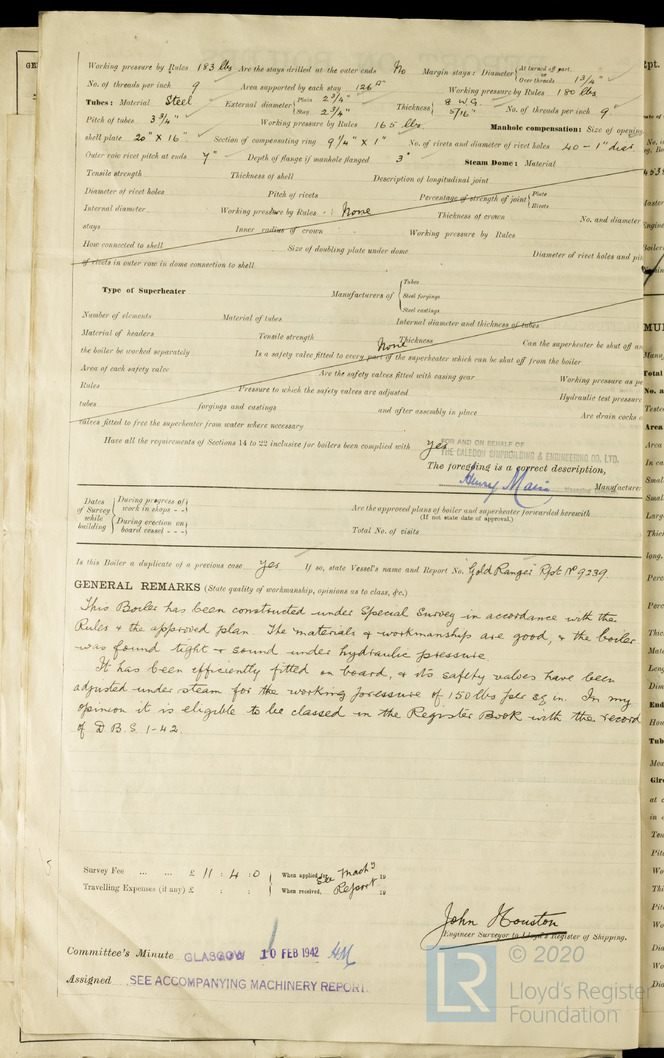 Working pressure by Rules 183 lbs Are the stays drilled at the outer ends No Margin stays: Diameter { At turned off part, or Over threads 1 3/4"
No. of threads per inch 9 Area supported by each stay 126 □" Working pressure by Rules 180 lbs.
Tubes: Material Steel External diameter { Plain 2 3/4" Stay 2 3/4" Thickness { 8 W.G. 5/16" No. of threads per inch 9
Pitch of tubes 3 3/4" Working pressure by Rules 165 lbs. Manhole compensation: Size of opening
shell plate 20" X 16" Section of compensating ring 9 1/4" X 1" No. of rivets and diameter of rivet holes 40 - 1" dia.
Outer row rivet pitch at ends 7" Depth of flange if manhole flanged 3" Steam Dome: Material
Tensile strength Thickness of shell Description of longitudinal joint
Diameter of rivet holes Pitch of rivets Percentage of strength of joint { Plate Rivets
Internal diameter Working pressure by Rules None Thickness of crown No. and diameter
stays Inner radius of crown Working pressure by Rules
How connected to shell Size of doubling plate under dome Diameter of rivet holes and pi
of rivets in outer row in dome connection to shell
Type of Superheater Manufacturers of { Tubes Steel forgings Steel castings
Number of elements Material of tubes Internal diameter and thickness of tubes
Material of headers Tensile strength Thickness Can the superheater be shut off an
the boiler be worked separately None Is a safety valve fitted to every part of the superheater which can be shut off from the boiler
Area of each safety valve Are the safety valves fitted with easing gear Working pressure as pe
Rules Pressure to which the safety valves are adjusted Hydraulic test pressure
tubes forgings and castings and after assembly in place Are drain cocks o
valves fitted to free the superheater from water where necessary
Have all the requirements of Sections 14 to 22 inclusive for boilers been complied with yes
FOR AND ON BEHALF OF
THE CALEDON SHIPBUILDING & ENGINEERING CO. LTD.
The foregoing is a correct description,
Henry Main Manufacturer
Dates of Survey while building { During progress of work in shops - - During erection on board vessel - - -
Are the approved plans of boiler and superheater forwarded herewith
(If not state date of approval.)
Total No. of visits
Is this Boiler a duplicate of a previous case yes If so, state Vessel's name and Report No. "Gold Ranger" Rpt No 9239.
GENERAL REMARKS (State quality of workmanship, opinions as to class, &c.)
This Boiler has been constructed under Special Survey in accordance with the
Rules & the approved plan. The materials & workmanship are good, & the boiler
was found tight & sound under hydraulic pressure.
It has been efficiently fitted on board, & its safety valves have been
adjusted under steam for the working pressure of 150 lbs per sq in. In my
opinion it is eligible to be classed in the Register Book with the record
of D.B.S. 1-42.
Survey Fee ... ... £ 11 : 4 : 0 When applied for, See Mach'y 19
Travelling Expenses (if any) £ : : When received, Report 19
John Houston
Engineer Surveyor to Lloyd's Register of Shipping.
Committee's Minute GLASGOW 10 FEB 1942
Assigned SEE ACCOMPANYING MACHINERY REPORT.
LR © 2020
Lloyd's Register
Foundation